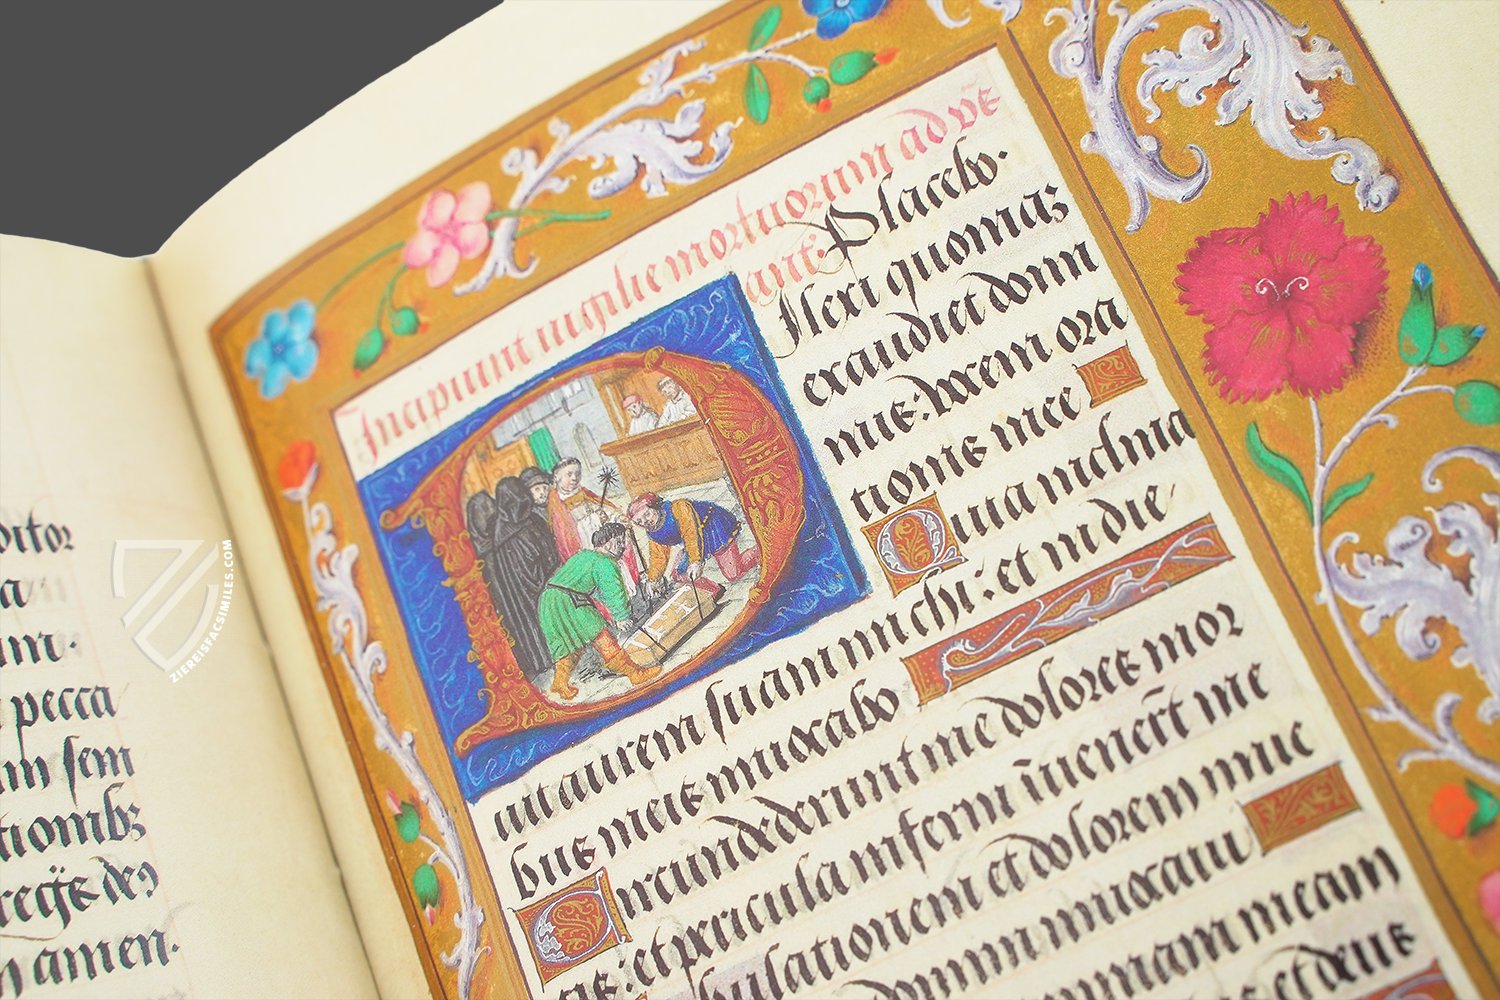 ditor
a
um.
pecca
m sem
tiombz
regis den
amen.
ZIEREISFACSIMILES.COM
Incipiunt vigilie mortuorum ad vẽ
ant: Placebo.
Ilexi quoniaz
exaudiet domi
nus: vocem ora
tionis mee
Quia inclina
uit aurem suam michi: et in die
bus meis inuocabo
Circundederunt me dolores mor
tis: et pericula inferni īuenert̄ me
bulationem et dolorem inue
domini inuocaui
animam meam
et deus